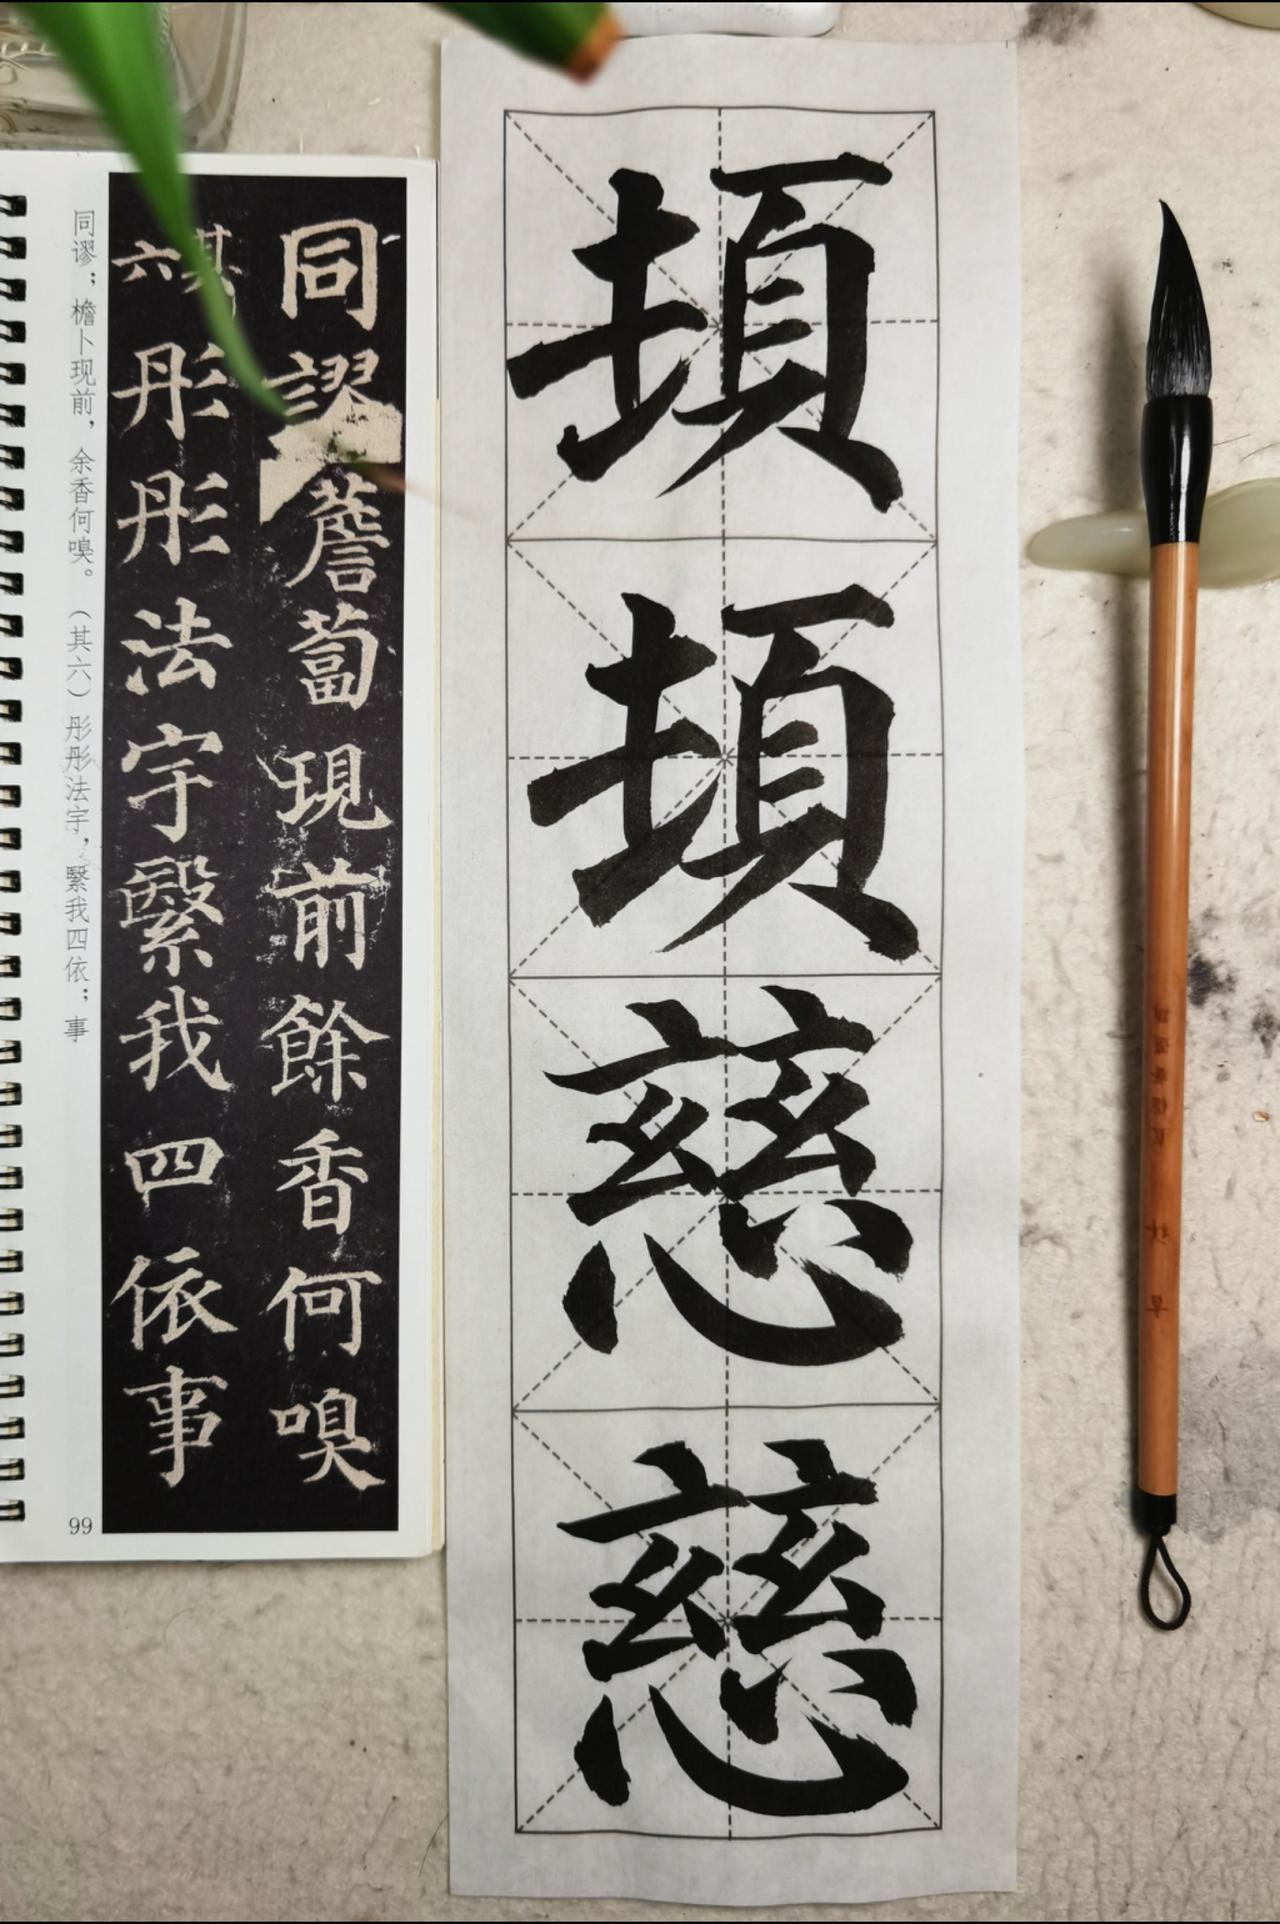 頓
頓
慈
慈
同謬薝蔔現前餘香何嗅
其六彤彤法宇繄我四依事
同谬；檐卜现前，余香何嗅。（其六）彤彤法宇，繄我四依；事
99